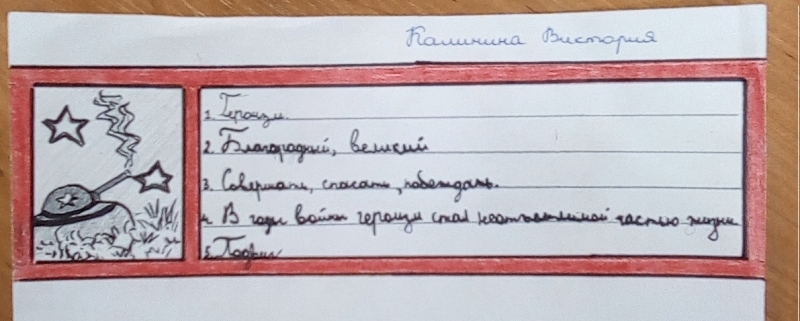 Калинина Виктория
1. Героизм.
2. Благородный, великий
3. Совершать, спасать, побеждать.
4. В годы войны героизм стал неотъемлимой частью жизни
5. Подвиг